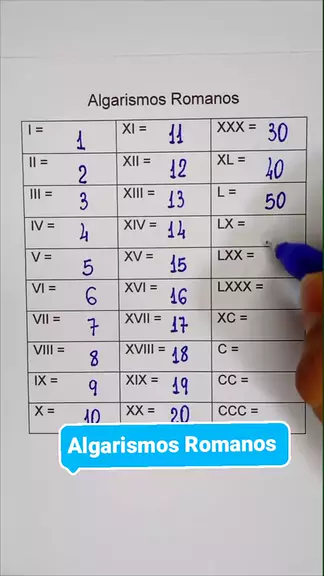 Algarismos Romanos
I = 1 XI = 11 XXX = 30
II = 2 XII = 12 XL = 40
III = 3 XIII = 13 L = 50
IV = 4 XIV = 14 LX =
V = 5 XV = 15 LXX =
VI = 6 XVI = 16 LXXX =
VII = 7 XVII = 17 XC =
VIII = 8 XVIII = 18 C =
IX = 9 XIX = 19 CC =
X = 10 XX = 20 CCC =
Algarismos Romanos